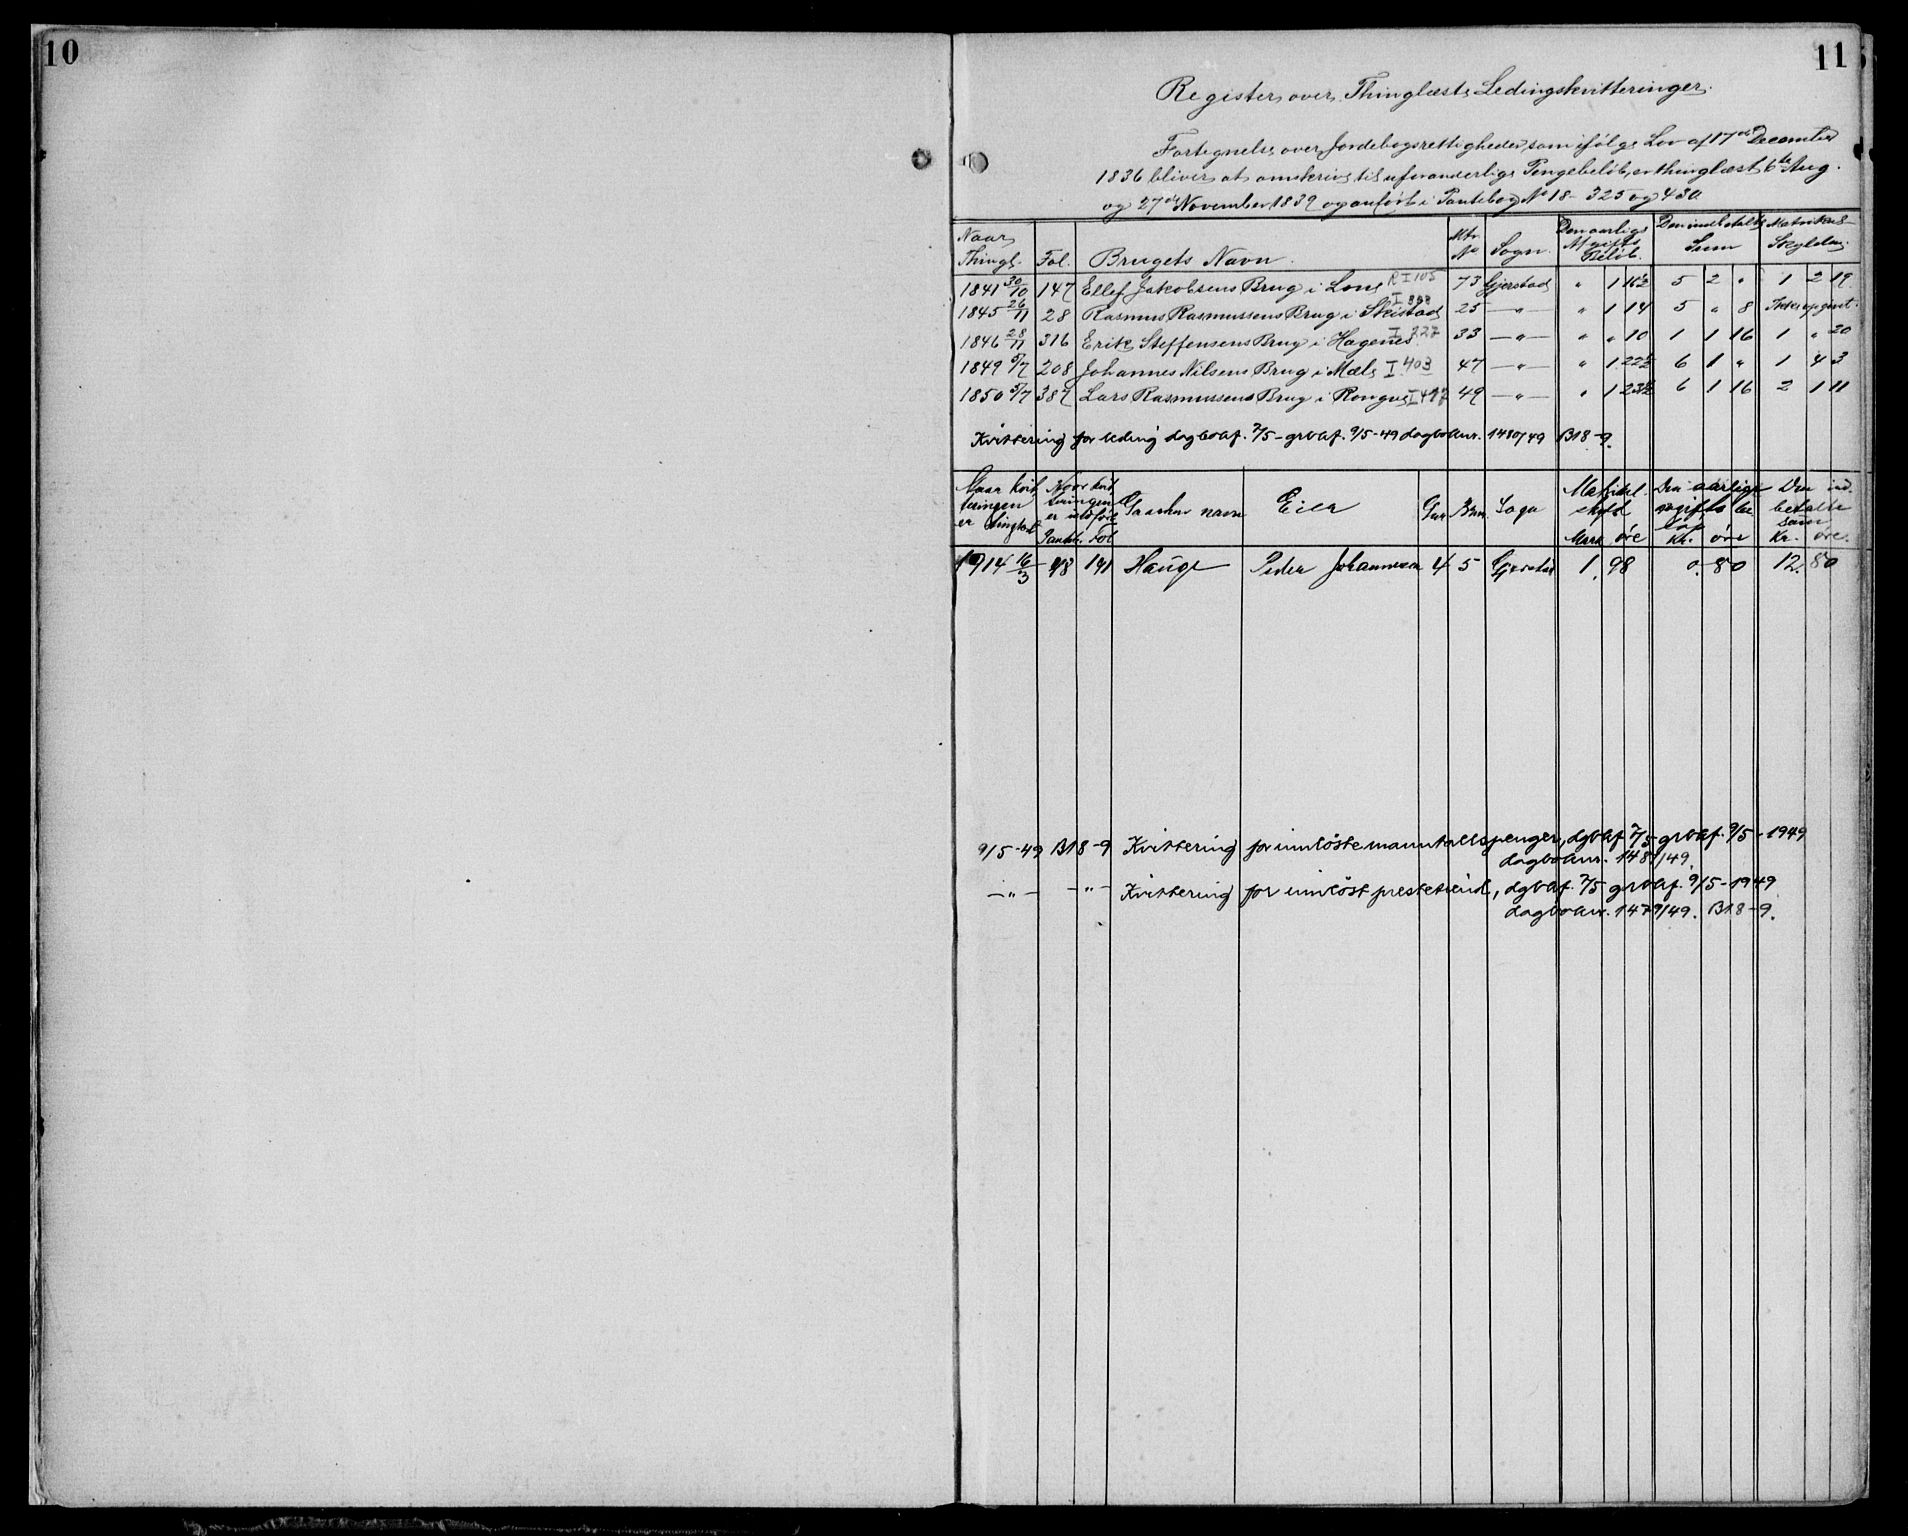 10
11
Register over Thinglæste Ledingskvitteringer.
Fortegnelse over Jordebogsrettigheder, som ifølge Lov af 17de December
1836 bliver at omskrive til uforanderlige Pengebeløb, er thinglæst 6te Aug.
og 27de November 1839 og anført i Pantebog No 18 - 325 og 430
Naar Thingl. Fol. Brugets Navn. Mtr No Sogn. Den aarlige Afgifts Beløb. Den indbetalte Sum Matrikul- Skylden.
1841 30/10 147 Ellef Jakobsens Brug i Lone R I 105 73 Gjerstad " 1 16½ 5 2 " 1 2 19
1845 26/11 28 Rasmus Rasmussens Brug i Skistad I 25 —"— " 1 14 5 " 8 Ikke opgivet.
1846 28/11 316 Erik Steffensens Brug i Hagenes I 327 33 —"— " " 10 1 1 16 1 " 20
1849 5/7 208 Johannes Nilsens Brug i Mæle I 403 47 —"— " 1 22½ 6 1 " 1 4 3
1850 5/7 387 Lars Rasmussens Brug i Ronge I 49 —"— " 1 23½ 6 1 16 2 1 11
Kvittering for leding dagbokf. 7/5 - grbkf. 9/5-49 dagboknr. 1480/49 B18-9.
Naar kvitteringen er tinglæst Naar kvitteringen er indført Pantb. Fol Gaardens navn Eier Gnr Bnr. Sogn Matrikul skyld Mark øre Den aarlige avgifts beløp Kr. øre Den indbetalte sum Kr. øre.
1914 16/3 98 191 Hauge Peder Johannesen 4 5 Gjerstad 1. 98 0. 80 12. 80
9/5-49 B18-9 Kvittering for innløste manntallspenger, dgbkf. 7/5 grbkf. 9/5-1949
dagboknr. 1481/49.
—"— —"— Kvittering for innløst prestetiend, dgbkf. 7/5 grbkf. 9/5-1949
dagboknr. 1479/49. B18-9.